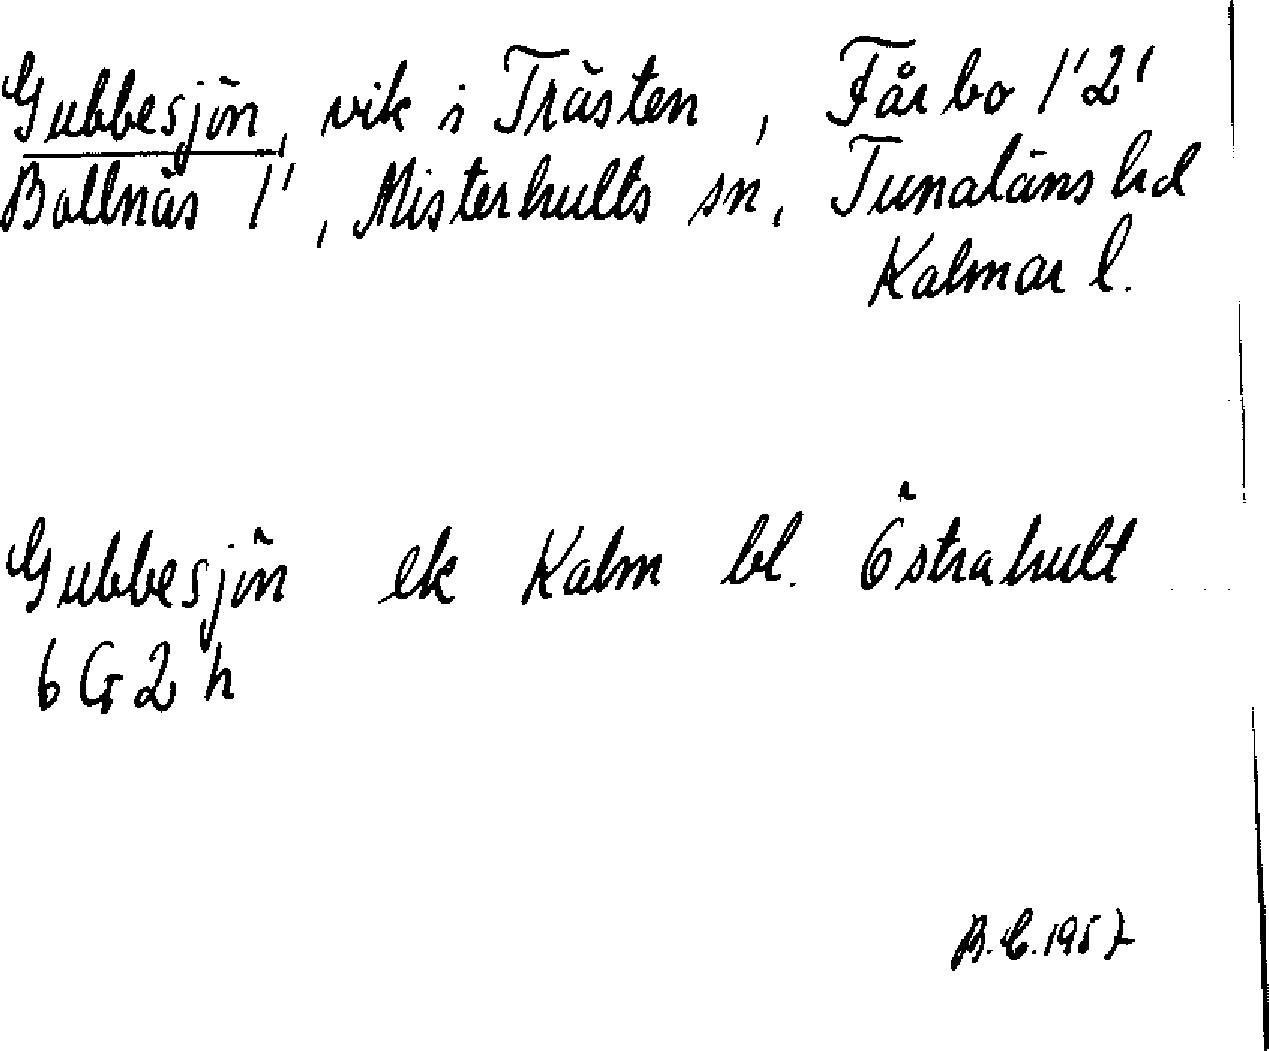 Gubbesjön, vik i Trästen, Fårbo 1'2'
Bollnäs 1', Misterhults sn, Tunaläns hd
Kalmar l.
Gubbesjön ek Kalm bl. Östrahult
6 G 2 h
B.E. 1957